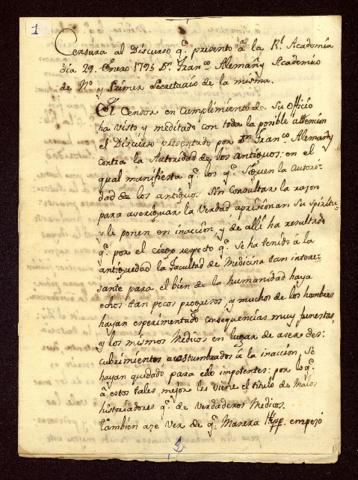 1
Censura al Discurso q.e presentó á la R.l Academia
dia 29. Enero 1795 D.n Fran.co Alemañy Academico
de N.o y Primer Secretario de la misma.
El Censor en cumplimiento de Su Officio
ha visto y meditado con toda la posible attencion
el Discurso presentado por D.n Fran.co Alemañy
contra la Autoridad de los Antiguos: en el
qual manifiesta q.e los q.e Siguen la Autori-
dad de los antiguos Sin Consultar la razon
para averiguar la Verdad aprisionan Su Spiritu
y le ponen en inaccion, y de alli ha resultado
q.e por el ciego respeto q.e Se ha tenido á la
antiguedad la Facultad de Medicina tan intere-
sante para el bien de la humanidad haya
echos tan pocos progresos, y muchos de los hombres
hayan experimentado consequencias muy funestas
y los mismos Medicos en lugar de acer des-
cubrimientos acostumbrados á la inaccion, Se
hayan quedado para ello impotentes: por lo q.e
á estos tales mejor les viene el titulo de Malos
historiadores q.e de verdaderos Medicos.
Tambien aze ver de q.e Manera empezó